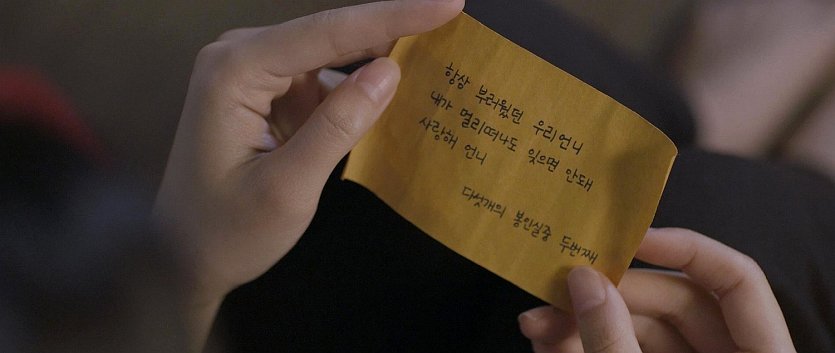 항상 부러웠던 우리언니
내가 멀리떠나도 잊으면 안돼
사랑해 언니
다섯개의 봉인실중 두번째